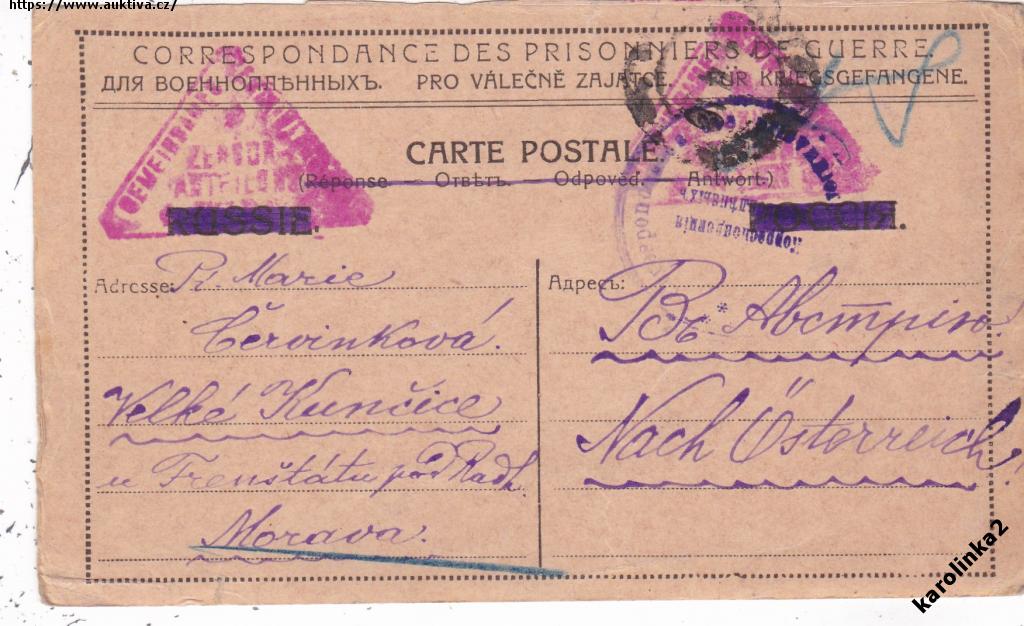 https://www.auktiva.cz/
CORRESPONDANCE DES PRISONNIERS DE GUERRE
ДЛЯ ВОЕННОПЛѢННЫХЪ. PRO VÁLEČNĚ ZAJATCE. FÜR KRIEGSGEFANGENE.
CARTE POSTALE.
(Réponse — Отвѣтъ. — Odpověd. — Antwort.)
RUSSIE.
РОССІЯ.
ZENSUR
Adresse: Marie
Červinková.
Velké Kunčice
u Frenštátu pod Radh.
Morava.
Адресъ:
Въ Австрію
Nach Österreich!
karolinka2